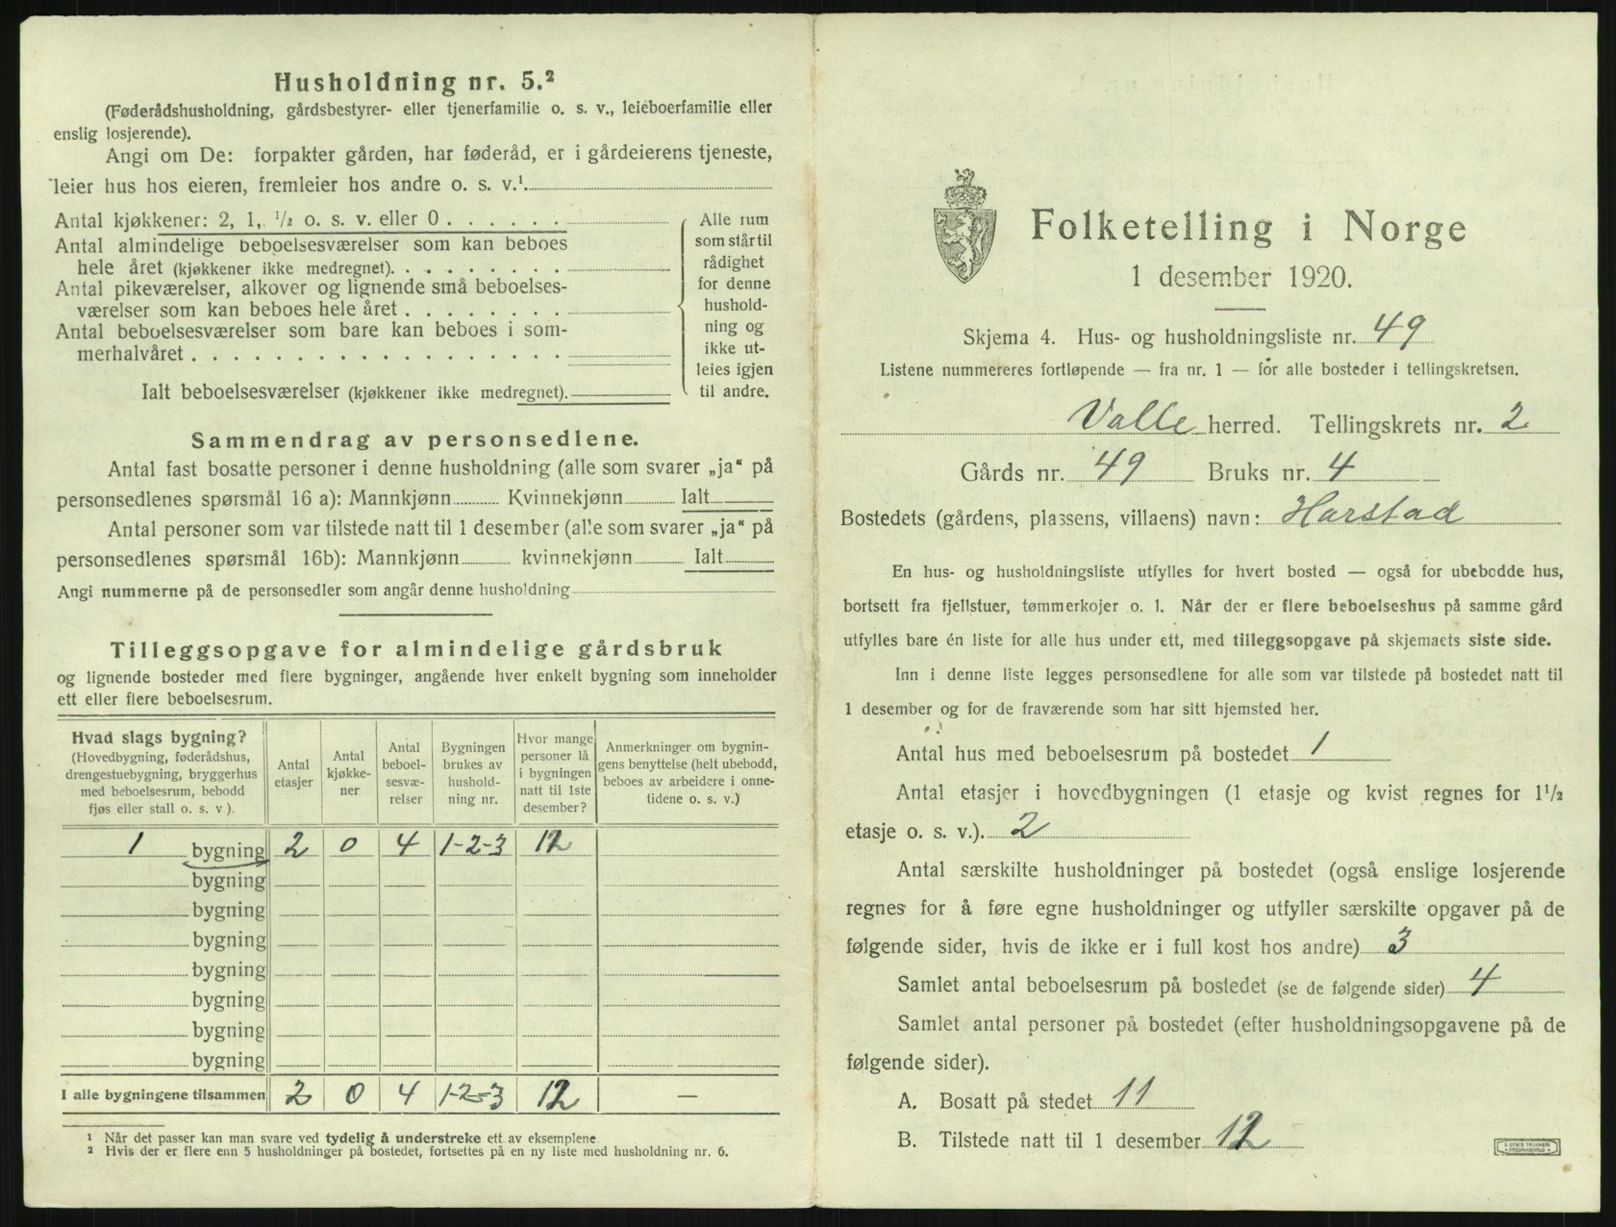 Husholdning nr. 5.²
(Føderådshusholdning, gårdsbestyrer- eller tjenerfamilie o. s. v., leieboerfamilie eller
enslig losjerende).
Angi om De: forpakter gården, har føderåd, er i gårdeierens tjeneste,
leier hus hos eieren, fremleier hos andre o. s. v.¹.
Antal kjøkkener: 2, 1, ½ o. s. v. eller 0 . . . . . .
Antal almindelige beboelsesværelser som kan beboes
hele året (kjøkkener ikke medregnet). . . . . . . . .
Antal pikeværelser, alkover og lignende små beboelses-
værelser som kan beboes hele året . . . . . . . .
Antal beboelsesværelser som bare kan beboes i som-
merhalvåret . . . . . . . . . . . . . . . . . .
Ialt beboelsesværelser (kjøkkener ikke medregnet).
Alle rum
som står til
rådighet
for denne
hushold-
ning og
ikke ut-
leies igjen
til andre.
Sammendrag av personsedlene.
Antal fast bosatte personer i denne husholdning (alle som svarer „ja“ på
personsedlenes spørsmål 16 a): Mannkjønn Kvinnekjønn Ialt
Antal personer som var tilstede natt til 1 desember (alle som svarer „ja“ på
personsedlenes spørsmål 16b): Mannkjønn kvinnekjønn Ialt
Angi nummerne på de personsedler som angår denne husholdning
Tilleggsopgave for almindelige gårdsbruk
og lignende bosteder med flere bygninger, angående hver enkelt bygning som inneholder
ett eller flere beboelsesrum.
Hvad slags bygning?
(Hovedbygning, føderådshus,
drengestuebygning, bryggerhus
med beboelsesrum, bebodd
fjøs eller stall o. s. v ).
Antal
etasjer
Antal
kjøkke-
ner
Antal
beboel-
sesvæ-
relser
Bygningen
brukes av
hushold-
ning nr.
Hvor mange
personer lå
i bygningen
natt til 1ste
desember?
Anmerkninger om bygnin-
gens benyttelse (helt ubebodd,
beboes av arbeidere i onne-
tidene o. s. v.)
1 bygning 2 0 4 1-2-3 12
bygning
bygning
bygning
bygning
bygning
bygning
bygning
I alle bygningene tilsammen 2 0 4 1-2-3 12 —
¹ Når det passer kan man svare ved tydelig å understreke ett av eksemplene
² Hvis der er flere enn 5 husholdninger på bostedet, fortsettes på en ny liste med husholdning nr. 6.
Folketelling i Norge
1 desember 1920.
Skjema 4. Hus- og husholdningsliste nr. 49
Listene nummereres fortløpende — fra nr. 1 — for alle bosteder i tellingskretsen.
Valle herred. Tellingskrets nr. 2
Gårds nr. 49 Bruks nr. 4
Bostedets (gårdens, plassens, villaens) navn: Harstad
En hus- og husholdningsliste utfylles for hvert bosted — også for ubebodde hus,
bortsett fra fjellstuer, tømmerkojer o. l. Når der er flere beboelseshus på samme gård
utfylles bare én liste for alle hus under ett, med tilleggsopgave på skjemaets siste side.
Inn i denne liste legges personsedlene for alle som var tilstede på bostedet natt til
1 desember og for de fraværende som har sitt hjemsted her.
Antal hus med beboelsesrum på bostedet 1
Antal etasjer i hovedbygningen (1 etasje og kvist regnes for 1½
etasje o. s. v.). 2
Antal særskilte husholdninger på bostedet (også enslige losjerende
regnes for å føre egne husholdninger og utfyller særskilte opgaver på de
følgende sider, hvis de ikke er i full kost hos andre) 3
Samlet antal beboelsesrum på bostedet (se de følgende sider) 4
Samlet antal personer på bostedet (efter husholdningsopgavene på de
følgende sider).
A. Bosatt på stedet 11
B. Tilstede natt til 1 desember 12